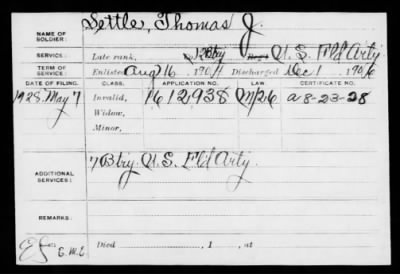 NAME OF SOLDIER: Settle, Thomas J.
SERVICE: Late rank, Btry U.S. Fld Arty
TERM OF SERVICE: Enlisted Aug 16, 190 Discharged Dec 1, 190
DATE OF FILING. CLASS. APPLICATION NO. LAW. CERTIFICATE NO.
1928 May 7 Invalid, 1612938 a 8-23-28
Widow,
Minor,
ADDITIONAL SERVICES: 7 Btry. U.S. Fld Arty.
REMARKS:
Died , 1 , at